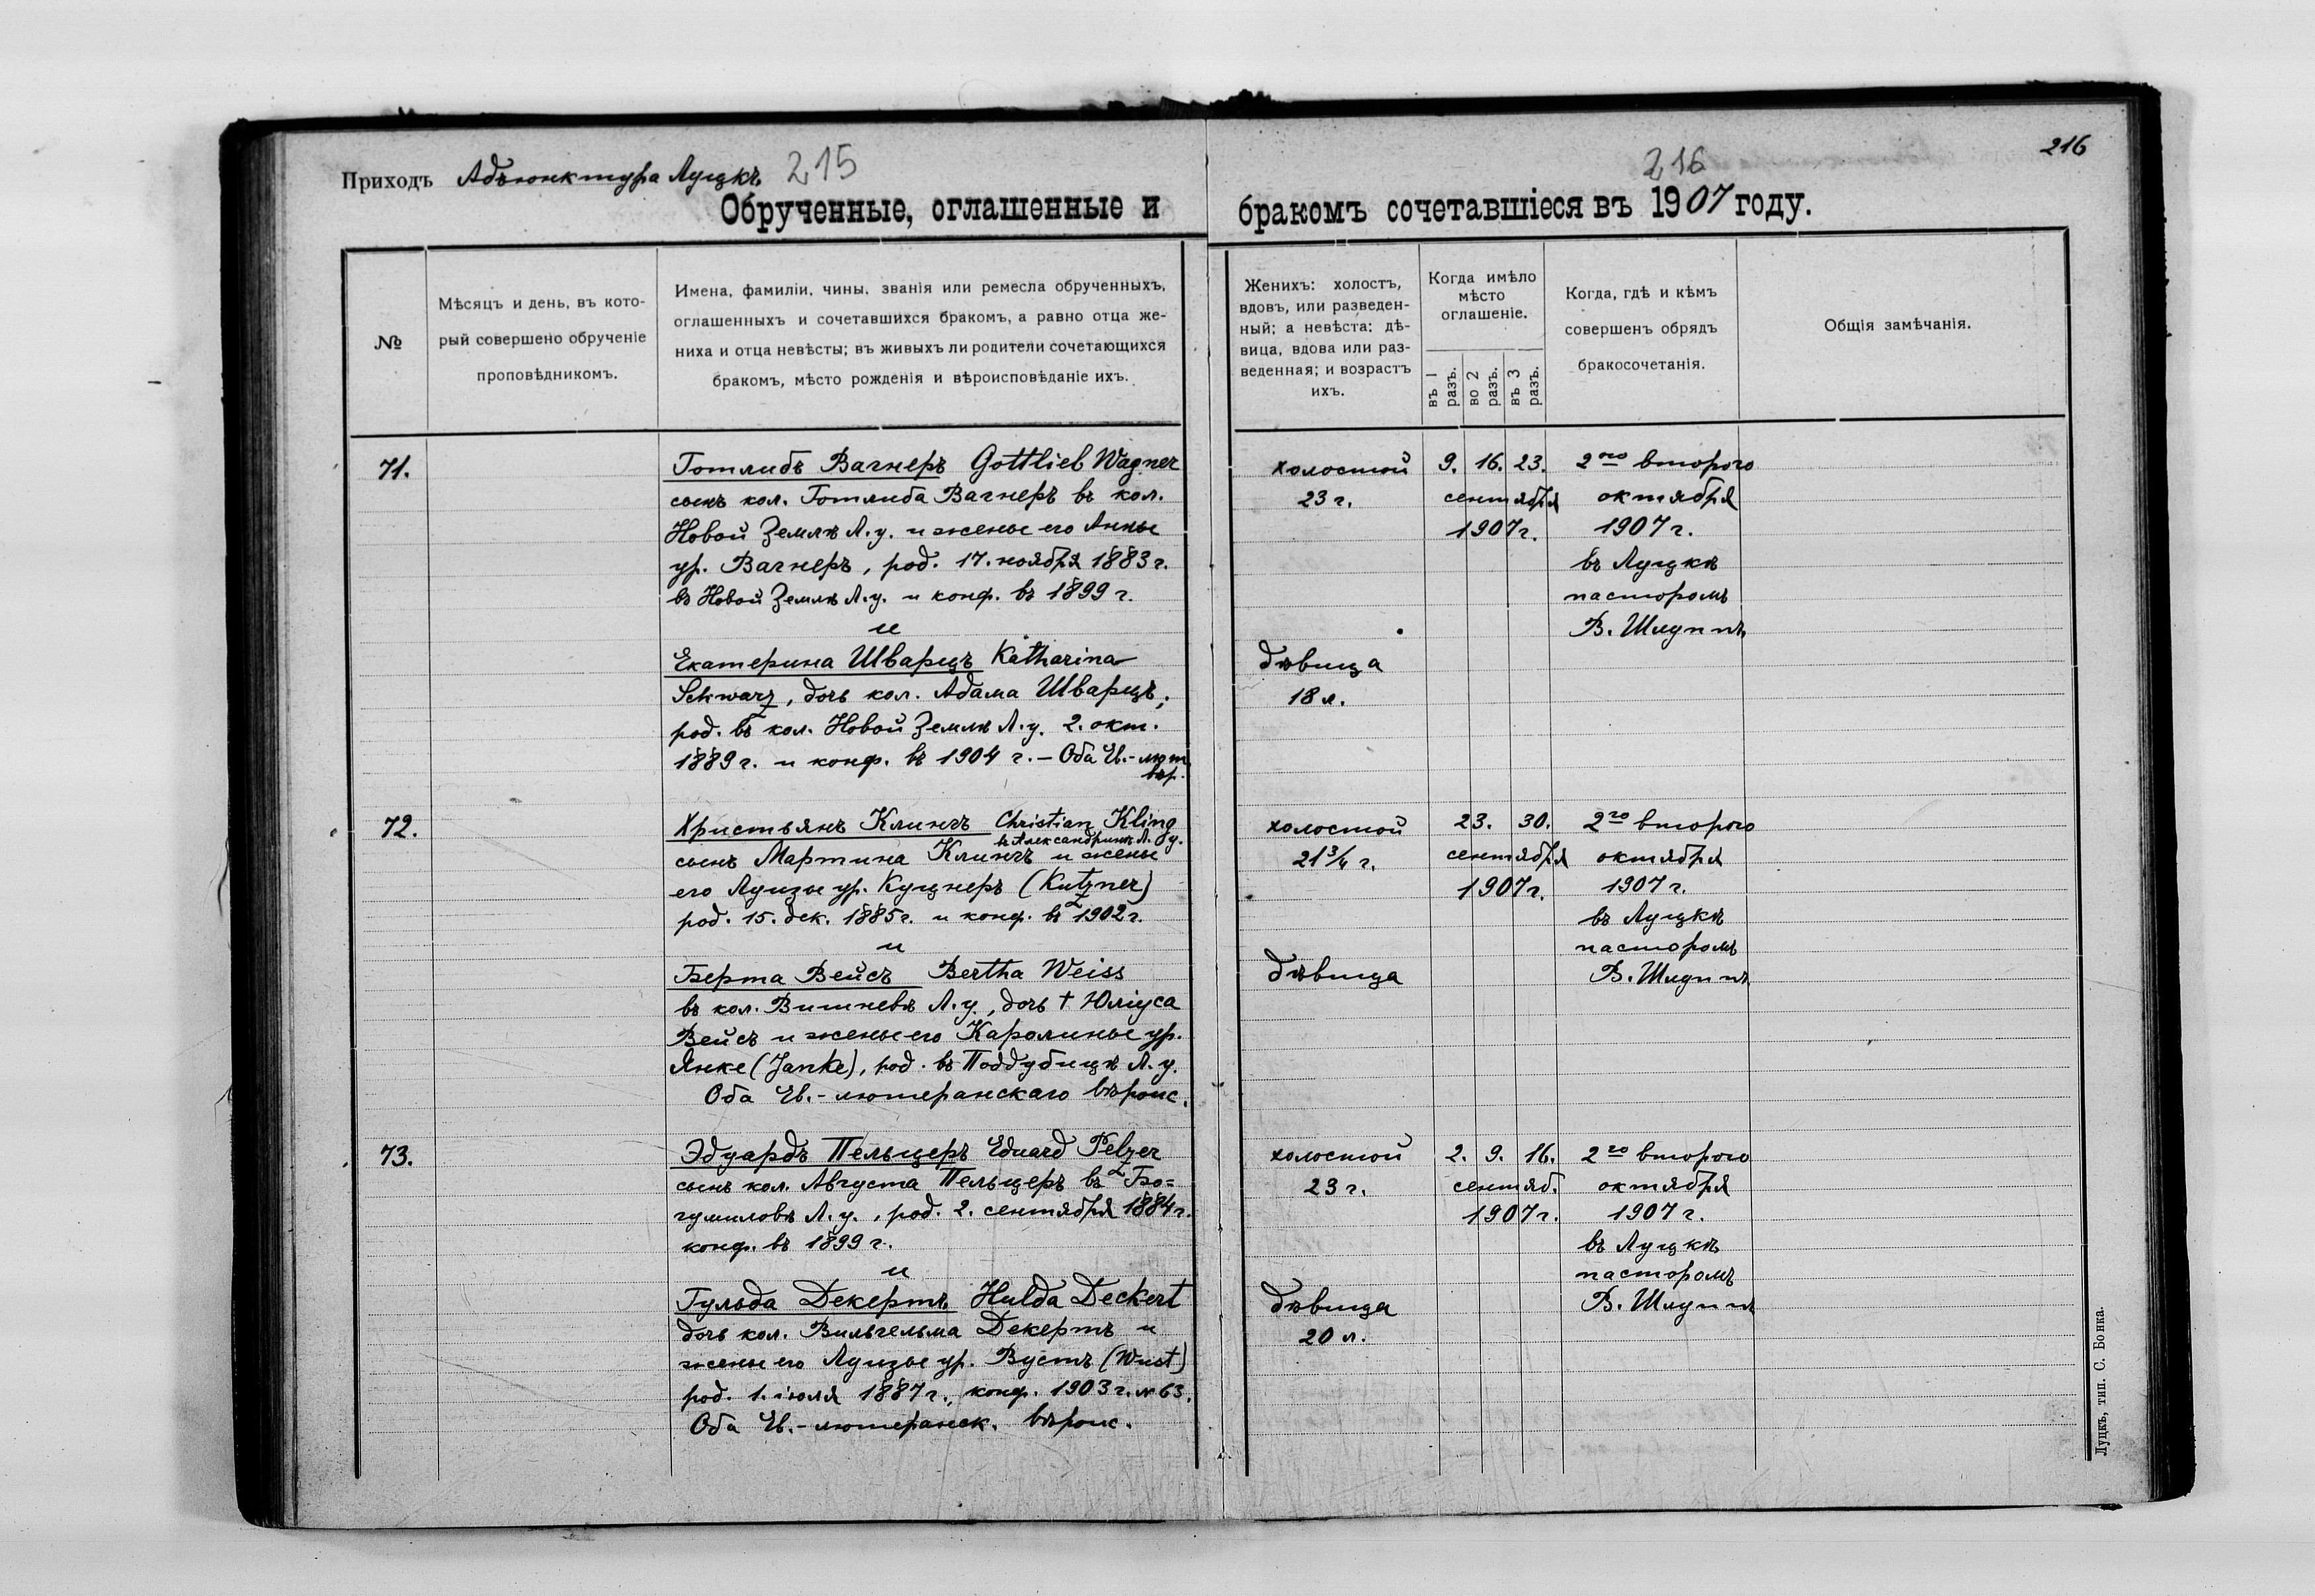 Приходъ Адъюнктура Луцкъ 215
Обрученные, оглашенные и
№
Мѣсяцъ и день, въ кото-
рый совершено обрученіе
проповѣдникомъ.
Имена, фамиліи, чины, званія или ремесла обрученныхъ,
оглашенныхъ и сочетавшихся бракомъ, а равно отца же-
ниха и отца невѣсты; въ живыхъ ли родители сочетающихся
бракомъ, мѣсто рожденія и вѣроисповѣданіе ихъ.
71.
Готлибъ Вагнеръ Gottlieb Wagner
сынъ кол. Готлиба Вагнеръ въ кол.
Новой Землѣ Л.у. и жены его Анны
ур. Вагнеръ, род. 17. ноября 1883 г.
въ Новой Землѣ Л.у. и конф. въ 1899 г.
и
Екатерина Шварцъ Katharina
Schwarz, дочь кол. Адама Шварцъ,
род. въ кол. Новой Землѣ Л.у. 2. окт.
1889 г. и конф. въ 1904 г. – Оба Ев.-лют
вѣр.
72.
Христьянъ Клингъ Christian Kling
въ Александринѣ Л. у.
сынъ Мартина Клингъ и жены
его Луизы ур. Куцнеръ (Kutzner)
род. 15. дек. 1885 г. и конф. въ 1902 г.
и
Берта Вейсъ Bertha Weiss
въ кол. Вишневѣ Л.у., дочь † Юліуса
Вейсъ и жены его Каролины ур.
Янке (Janke), род. въ Поддубицѣ Л.у.
Оба Ев.-лютеранскаго вѣроис.
73.
Эдуардъ Пельцеръ Eduard Pelzer
сынъ кол. Августа Пельцеръ въ Бо=
гумиловѣ Л.у., род. 2. сентября 1884 г.
конф. въ 1899 г.
и
Гульда Декертъ Hulda Deckert
дочь кол. Вильгельма Декертъ и
жены его Луизы ур. Вустъ (Wust)
род. 1. іюля 1887 г., конф. 1903 г. № 63.
Оба Ев.-лютеранск. вѣроис.
216
216
бракомъ сочетавшіеся въ 1907 году.
Женихъ: холостъ,
вдовъ, или разведен-
ный; а невѣста: дѣ-
вица, вдова или раз-
веденная; и возрастъ
ихъ.
Когда имѣло
мѣсто
оглашеніе.
въ 1 разъ.
во 2 разъ.
въ 3 разъ.
Когда, гдѣ и кѣмъ
совершенъ обрядъ
бракосочетанія.
Общія замѣчанія.
холостой
23 г.
9. 16. 23.
сентября
1907 г.
2го второго
октября
1907 г.
въ Луцкѣ
пасторомъ
В. Шлуппъ
дѣвица
18 л.
холостой
21 3/4 г.
23. 30.
сентября
1907 г.
2го второго
октября
1907 г.
въ Луцкѣ
пасторомъ
В. Шлуппъ
дѣвица
холостой
23 г.
2. 9. 16.
сентяб.
1907 г.
2го второго
октября
1907 г.
въ Луцкѣ
пасторомъ
В. Шлуппъ
дѣвица
20 л.
Луцкъ, тип. С. Бонка.